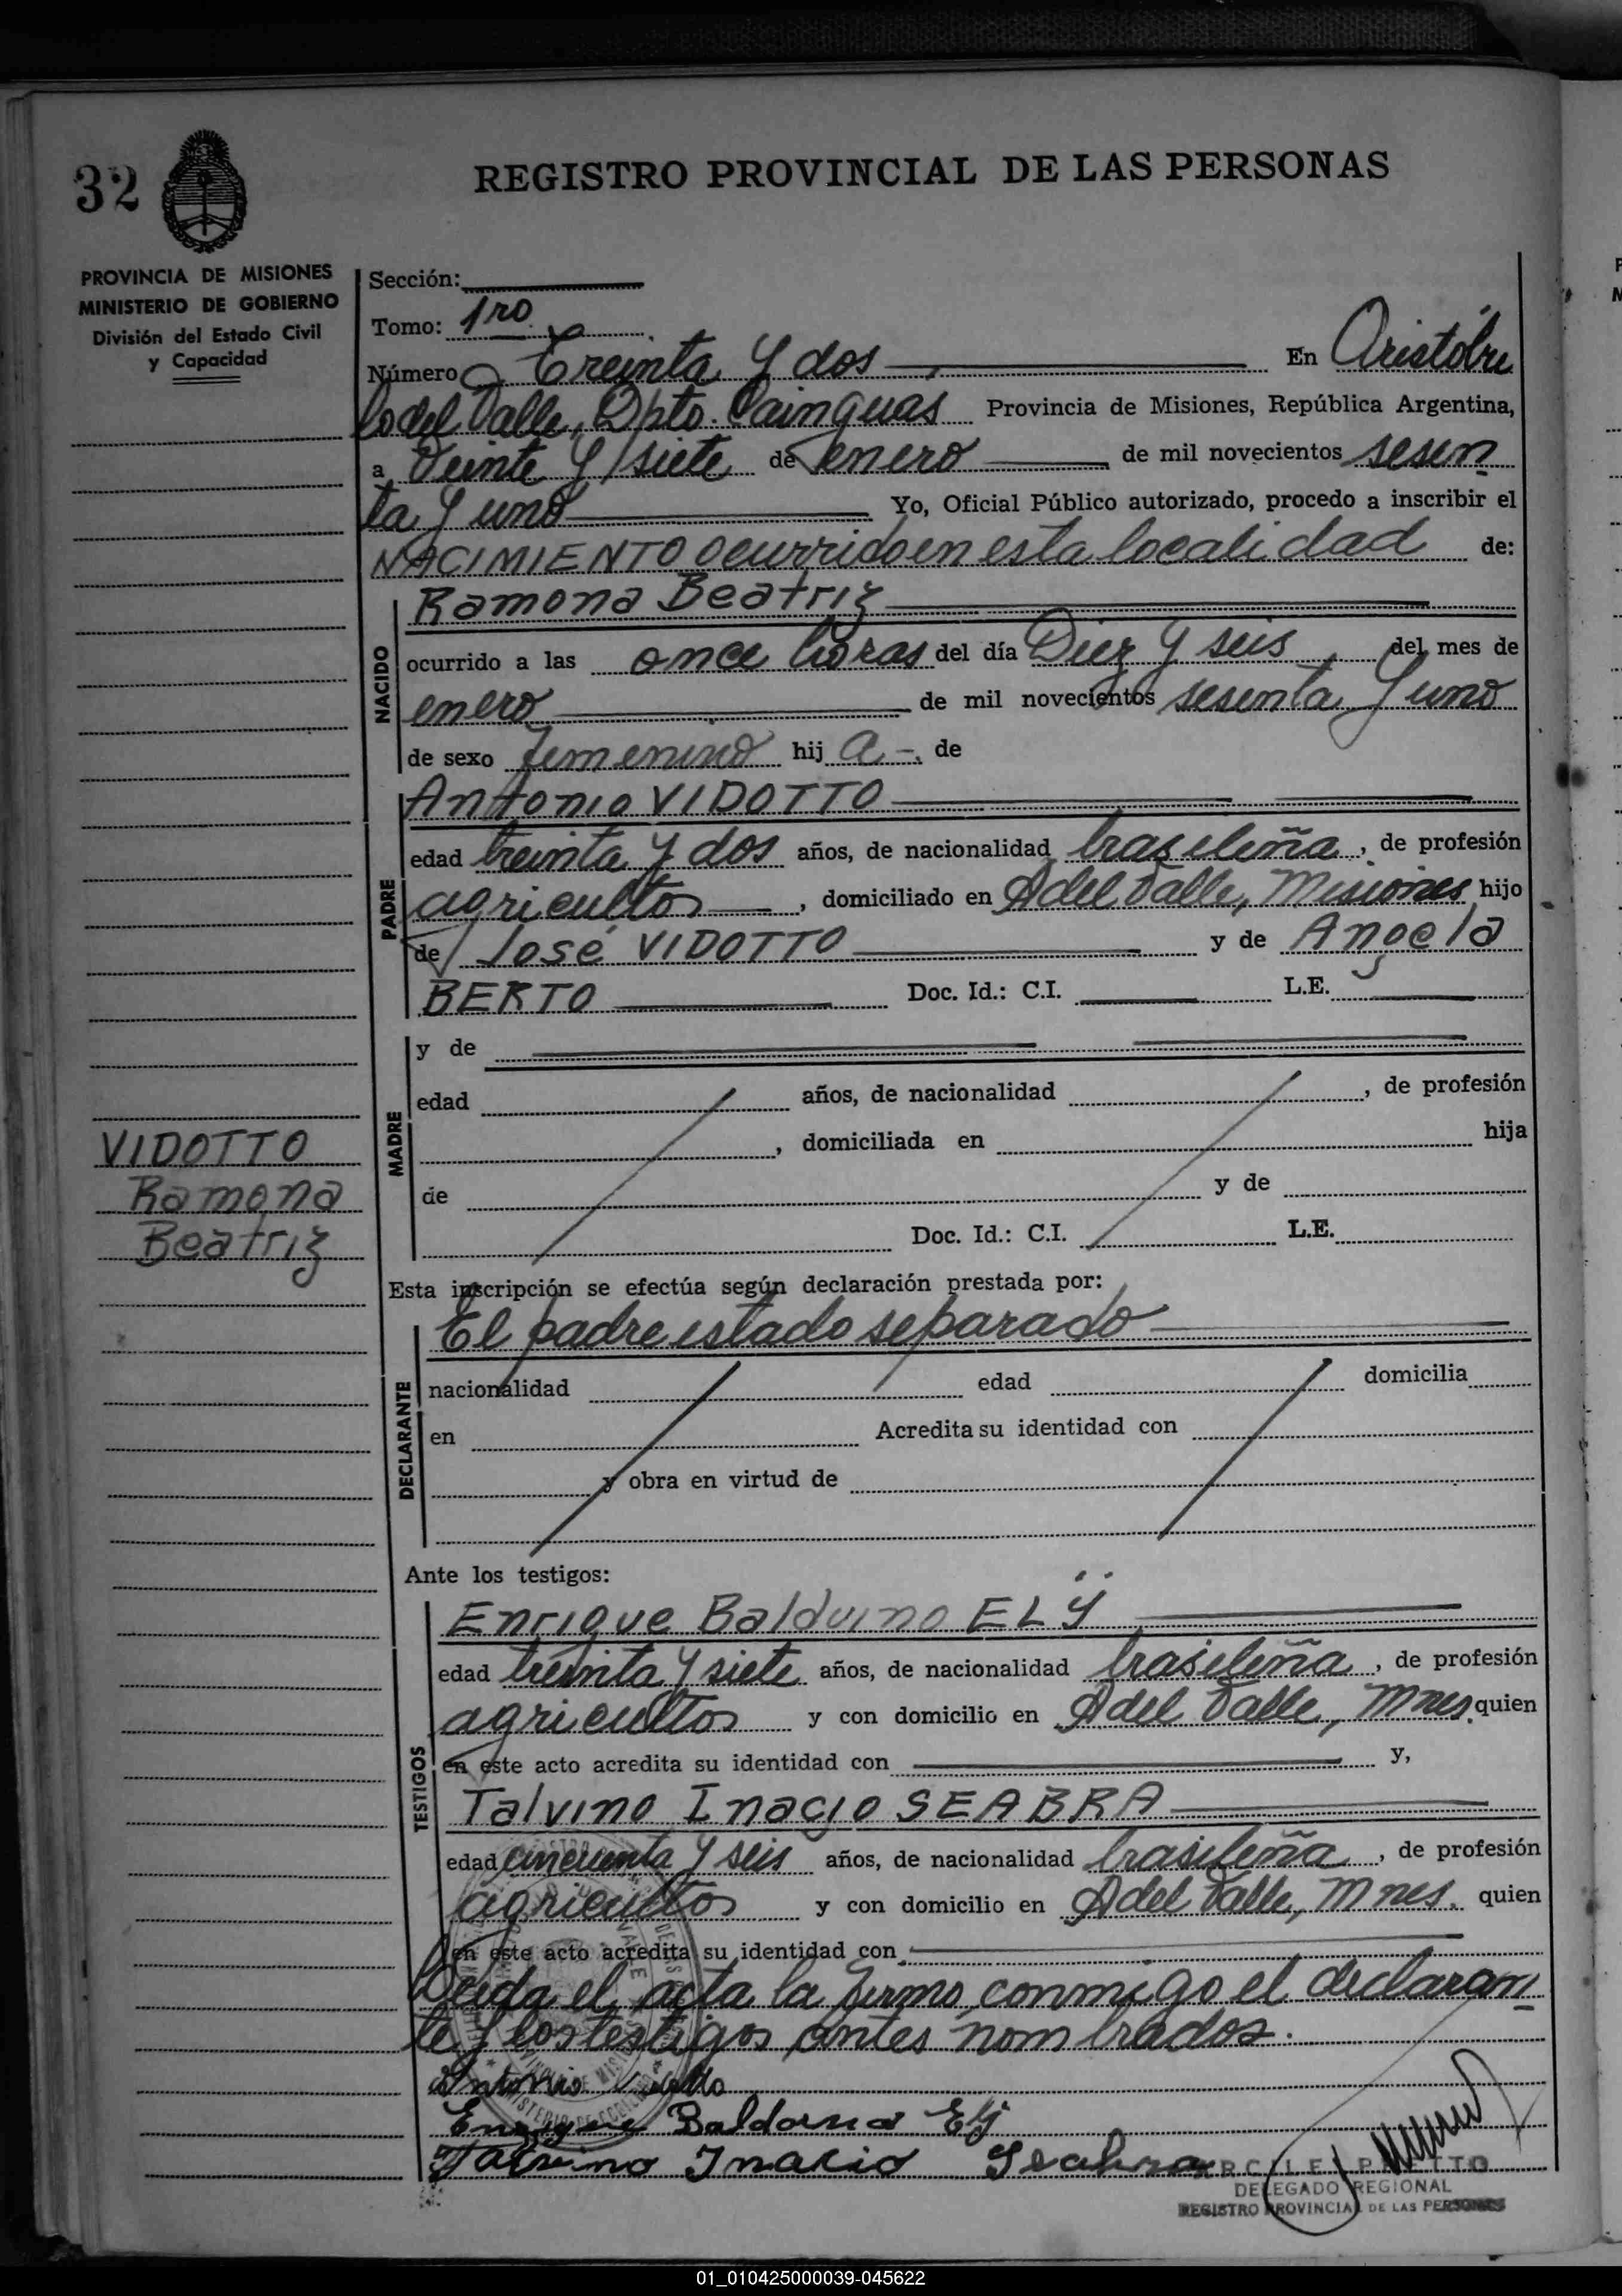 32
REGISTRO PROVINCIAL DE LAS PERSONAS
PROVINCIA DE MISIONES
MINISTERIO DE GOBIERNO
División del Estado Civil
y Capacidad
Sección:
Tomo: 1ro
Número Treinta y dos En Aristóbu
lo del Valle, Dpto. Cainguas Provincia de Misiones, República Argentina,
a Veinte y siete de enero de mil novecientos sesen
ta y uno Yo, Oficial Público autorizado, procedo a inscribir el
NACIMIENTO ocurrido en esta localidad de:
NACIDO
Ramona Beatriz
ocurrido a las once horas del día Diez y seis del mes de
enero de mil novecientos sesenta y uno
de sexo femenino hij a -. de
PADRE
Antonio VIDOTTO
edad treinta y dos años, de nacionalidad brasileña, de profesión
agricultor, domiciliado en A del Valle, Misiones hijo
de José VIDOTTO y de Angela
BERTO Doc. Id.: C.I. L.E.
MADRE
y de
edad años, de nacionalidad , de profesión
, domiciliada en hija
de y de
Doc. Id.: C.I. L.E.
VIDOTTO
Ramona
Beatriz
Esta inscripción se efectúa según declaración prestada por:
DECLARANTE
El padre estado separado
nacionalidad edad domicilia
en Acredita su identidad con
y obra en virtud de
Ante los testigos:
TESTIGOS
Enrique Balduino ELÝ
edad treinta y siete años, de nacionalidad brasileña, de profesión
agricultor y con domicilio en A del Valle, Mnes. quien
en este acto acredita su identidad con y,
Talvino Inacio SEABRA
edad cincuenta y seis años, de nacionalidad brasileña, de profesión
agricultor y con domicilio en A del Valle, Mnes. quien
en este acto acredita su identidad con
Leida el acta la firmo conmigo el declaran
te y los testigos antes nombrados.
Antonio Vidotto
Enrique Baldoino Ely
Talvino Inacio Seabra
DELEGADO REGIONAL
REGISTRO PROVINCIAL DE LAS PERSONAS
01_010425000039-045622